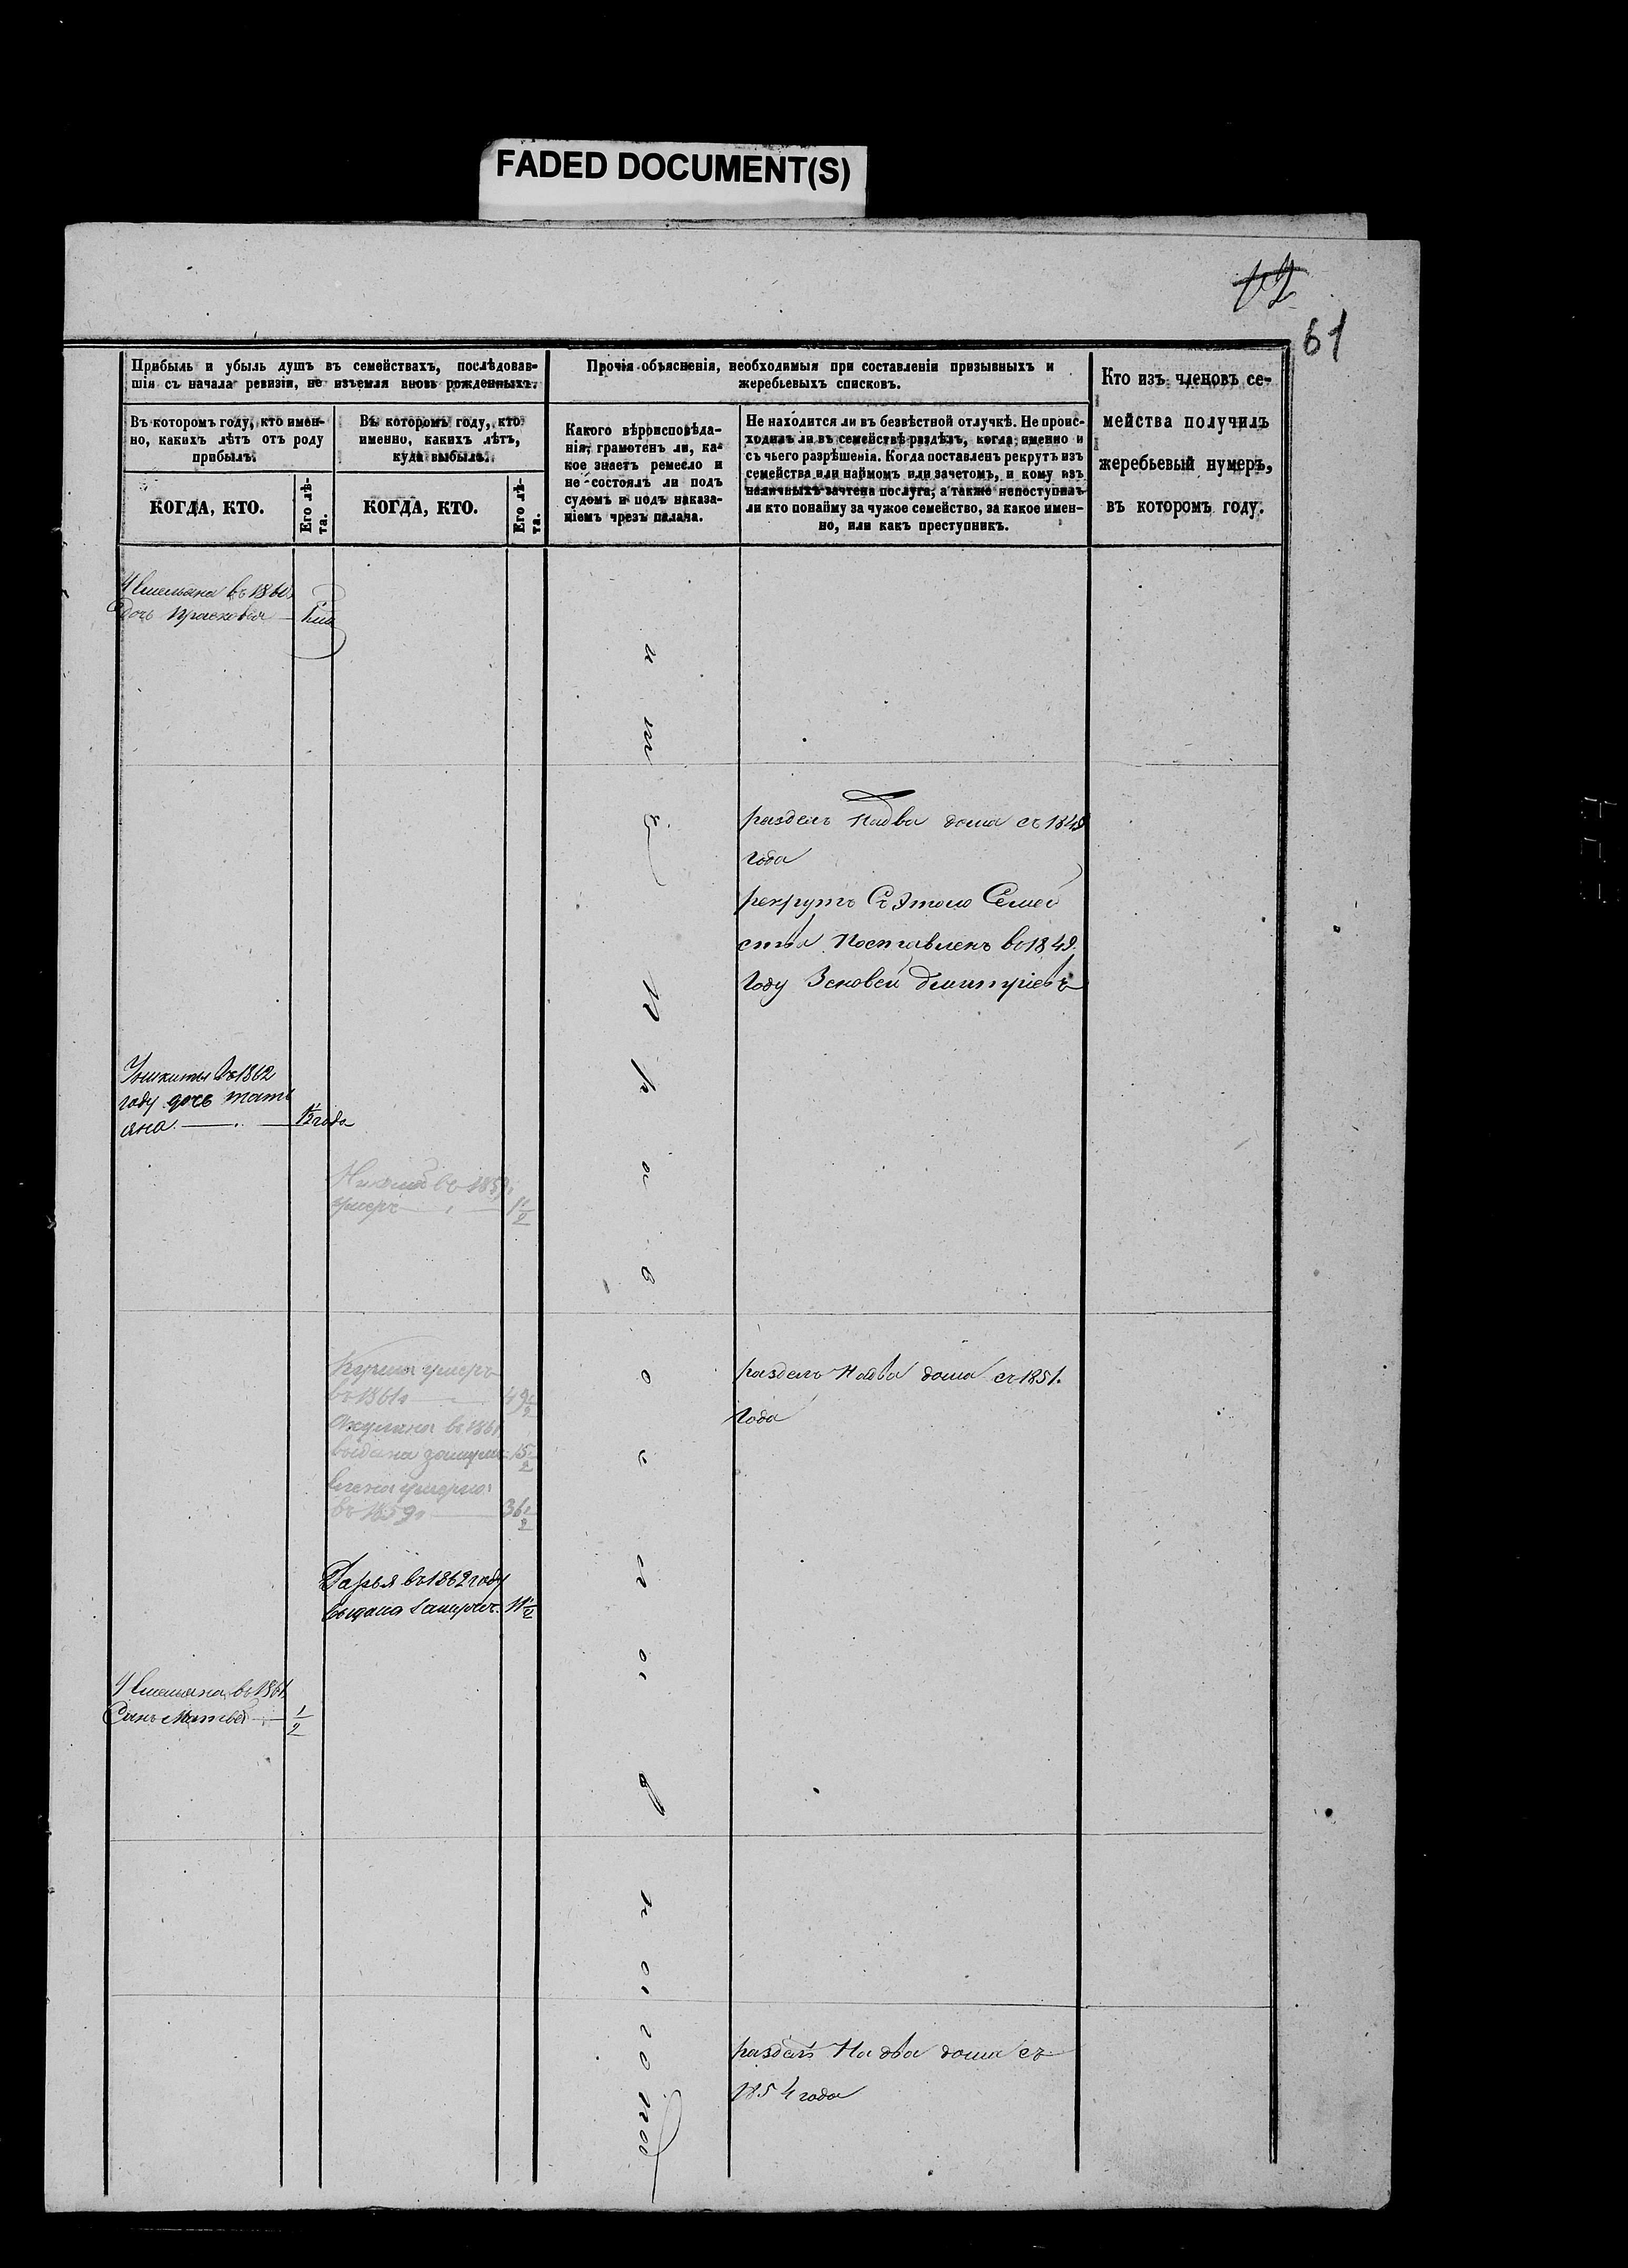 FADED DOCUMENT(S)
61
Прибыль и убыль душъ въ семействахъ, послѣдовав-
шія съ начала ревизіи, не изъемля вновь рожденныхъ.
Въ которомъ году, кто имен-
но, какихъ лѣтъ отъ роду
прибылъ.
КОГДА, КТО.
Его лѣ-
та.
Въ которомъ году, кто
именно, какихъ лѣтъ,
куда выбылъ.
КОГДА, КТО.
Его лѣ-
та.
Прочія объясненія, необходимыя при составленіи призывныхъ и
жеребьевыхъ списковъ.
Какого вѣроисповѣда-
нія, грамотенъ ли, ка-
кое знаетъ ремесло и
не состоялъ ли подъ
судомъ и подъ наказа-
ніемъ чрезъ палача.
Не находится ли въ безвѣстной отлучкѣ. Не проис-
ходилъ ли въ семействѣ раздѣлъ, когда именно и
съ чьего разрѣшенія. Когда поставленъ рекрутъ изъ
семейства или наймомъ или зачетомъ, и кому изъ
наличныхъ зачтена послуга, а также непоступилъ
ли кто понайму за чужое семейство, за какое имен-
но, или какъ преступникъ.
Кто изъ членовъ се-
мейства получилъ
жеребьевый нумеръ,
въ которомъ году.
Уемельяна въ 1860
дочь Прасковья
разделъ Надва дома съ 1849
года
рекрутъ Съ Этого Семей
ства Поставленъ въ 1849.
Году Зеновей Дмитріевъ
Уникиты въ 1862
году дочь тать
яна. 1/2 года
въ 1859
умеръ 1 1/2
Кирила умеръ
въ 1861 49 1/2
Акулина въ 1861
выдана замуж 15 1/2
умерла
въ 1859 36 1/2
разделъ Надва дома съ 1851.
Года
Дарья въ 1862 году
выдана замужъ. 11 1/2
Уемельяна въ 1861
Сынъ Матвей 1/2
разделъ На два дома съ
1854 года